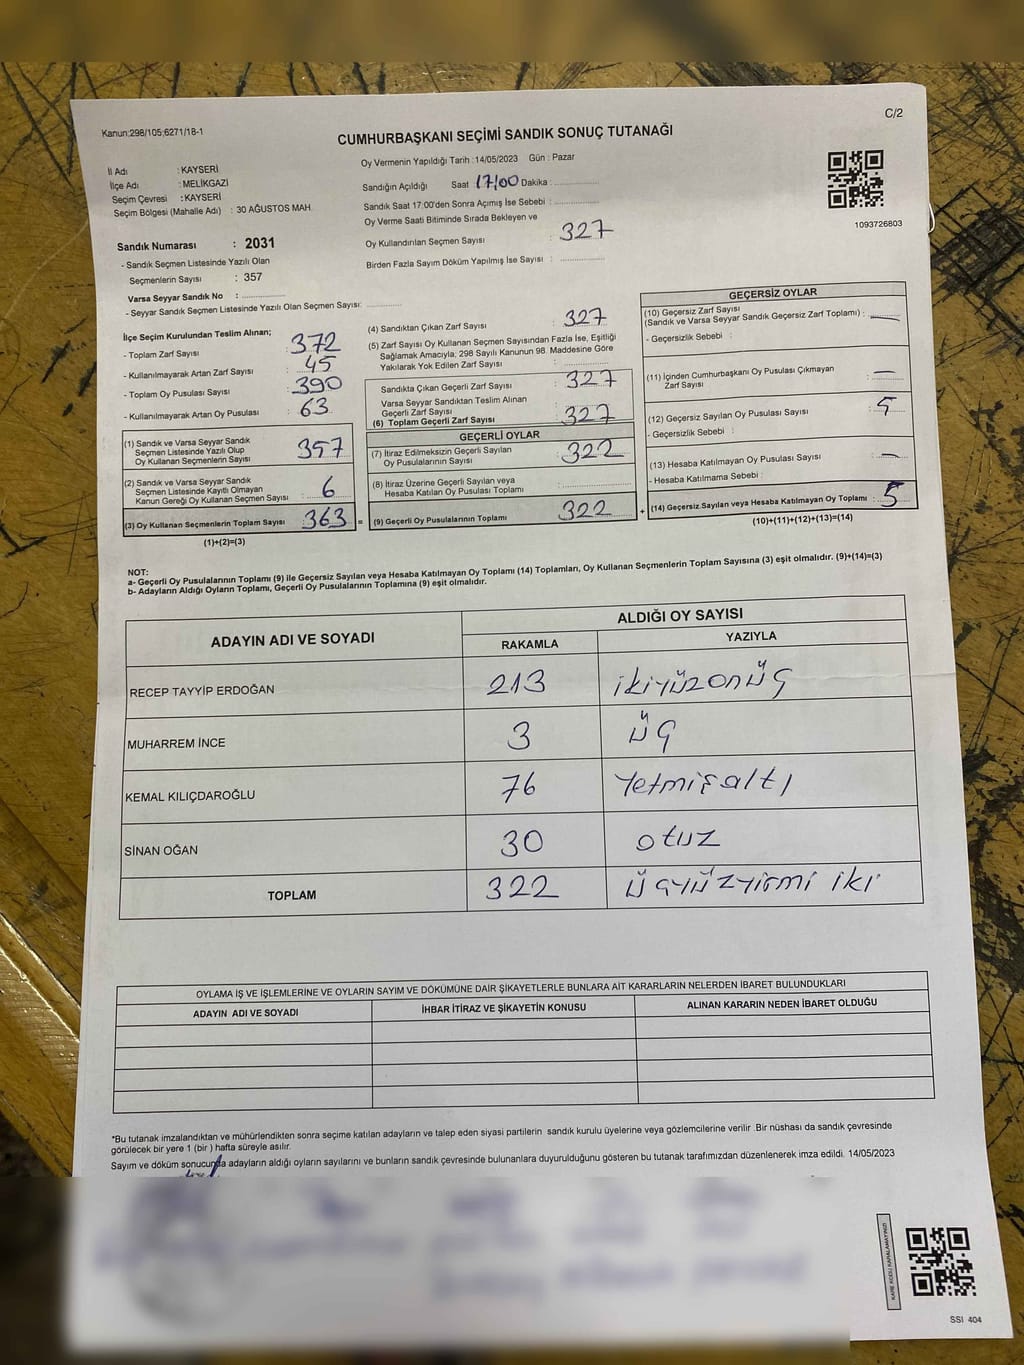 C/2
Kanun:298/105;6271/18-1
CUMHURBAŞKANI SEÇİMİ SANDIK SONUÇ TUTANAĞI
İl Adı : KAYSERİ
İlçe Adı : MELİKGAZİ
Seçim Çevresi : KAYSERİ
Seçim Bölgesi (Mahalle Adı) : 30 AĞUSTOS MAH.
Sandık Numarası : 2031
- Sandık Seçmen Listesinde Yazılı Olan
Seçmenlerin Sayısı : 357
Varsa Seyyar Sandık No : ................
- Seyyar Sandık Seçmen Listesinde Yazılı Olan Seçmen Sayısı: ............
Oy Vermenin Yapıldığı Tarih : 14/05/2023 Gün : Pazar
Sandığın Açıldığı Saat : 17:00 Dakika : ................
Sandık Saat 17:00'den Sonra Açımış İse Sebebi : ................
Oy Verme Saati Bitiminde Sırada Bekleyen ve
Oy Kullandırılan Seçmen Sayısı : 327
Birden Fazla Sayım Döküm Yapılmış İse Sayısı : ................
1093726803
İlçe Seçim Kurulundan Teslim Alınan;
- Toplam Zarf Sayısı : 372
- Kullanılmayarak Artan Zarf Sayısı : 45
- Toplam Oy Pusulası Sayısı : 390
- Kullanılmayarak Artan Oy Pusulası : 63
(1) Sandık ve Varsa Seyyar Sandık
Seçmen Listesinde Yazılı Olup
Oy Kullanan Seçmenlerin Sayısı : 357
(2) Sandık ve Varsa Seyyar Sandık
Seçmen Listesinde Kayıtlı Olmayan
Kanun Gereği Oy Kullanan Seçmen Sayısı : 6
(3) Oy Kullanan Seçmenlerin Toplam Sayısı : 363 =
(1)+(2)=(3)
(4) Sandıktan Çıkan Zarf Sayısı : 327
(5) Zarf Sayısı Oy Kullanan Seçmen Sayısından Fazla İse, Eşitliği
Sağlamak Amacıyla, 298 Sayılı Kanunun 98. Maddesine Göre
Yakılarak Yok Edilen Zarf Sayısı : ................
Sandıkta Çıkan Geçerli Zarf Sayısı : 327
Varsa Seyyar Sandıktan Teslim Alınan
Geçerli Zarf Sayısı :
(6) Toplam Geçerli Zarf Sayısı : 327
GEÇERLİ OYLAR
(7) İtiraz Edilmeksizin Geçerli Sayılan
Oy Pusulalarının Sayısı : 322
(8) İtiraz Üzerine Geçerli Sayılan veya
Hesaba Katılan Oy Pusulası Toplamı : ................
(9) Geçerli Oy Pusulalarının Toplamı : 322 +
GEÇERSİZ OYLAR
(10) Geçersiz Zarf Sayısı
(Sandık ve Varsa Seyyar Sandık Geçersiz Zarf Toplamı) : —
- Geçersizlik Sebebi :
(11) İçinden Cumhurbaşkanı Oy Pusulası Çıkmayan
Zarf Sayısı : —
(12) Geçersiz Sayılan Oy Pusulası Sayısı : 5
- Geçersizlik Sebebi :
(13) Hesaba Katılmayan Oy Pusulası Sayısı : —
- Hesaba Katılmama Sebebi :
(14) Geçersiz Sayılan veya Hesaba Katılmayan Oy Toplamı : 5
(10)+(11)+(12)+(13)=(14)
NOT:
a- Geçerli Oy Pusulalarının Toplamı (9) ile Geçersiz Sayılan veya Hesaba Katılmayan Oy Toplamı (14) Toplamları, Oy Kullanan Seçmenlerin Toplam Sayısına (3) eşit olmalıdır. (9)+(14)=(3)
b- Adayların Aldığı Oyların Toplamı, Geçerli Oy Pusulalarının Toplamına (9) eşit olmalıdır.
ADAYIN ADI VE SOYADI ALDIĞI OY SAYISI
RAKAMLA YAZIYLA
RECEP TAYYİP ERDOĞAN 213 ikiyüzonüç
MUHARREM İNCE 3 üç
KEMAL KILIÇDAROĞLU 76 Yetmişaltı
SİNAN OĞAN 30 otuz
TOPLAM 322 üçyüzyirmi iki
OYLAMA İŞ VE İŞLEMLERİNE VE OYLARIN SAYIM VE DÖKÜMÜNE DAİR ŞİKAYETLERLE BUNLARA AİT KARARLARIN NELERDEN İBARET BULUNDUKLARI
ADAYIN ADI VE SOYADI İHBAR İTİRAZ VE ŞİKAYETİN KONUSU ALINAN KARARIN NEDEN İBARET OLDUĞU
*Bu tutanak imzalandıktan ve mühürlendikten sonra seçime katılan adayların ve talep eden siyasi partilerin sandık kurulu üyelerine veya gözlemcilerine verilir .Bir nüshası da sandık çevresinde
görülecek bir yere 1 (bir ) hafta süreyle asılır.
Sayım ve döküm sonucunda adayların aldığı oyların sayılarını ve bunların sandık çevresinde bulunanlara duyurulduğunu gösteren bu tutanak tarafımızdan düzenlenerek imza edildi. 14/05/2023
KARE KODU KARALAMAYINIZ!
SSI 404